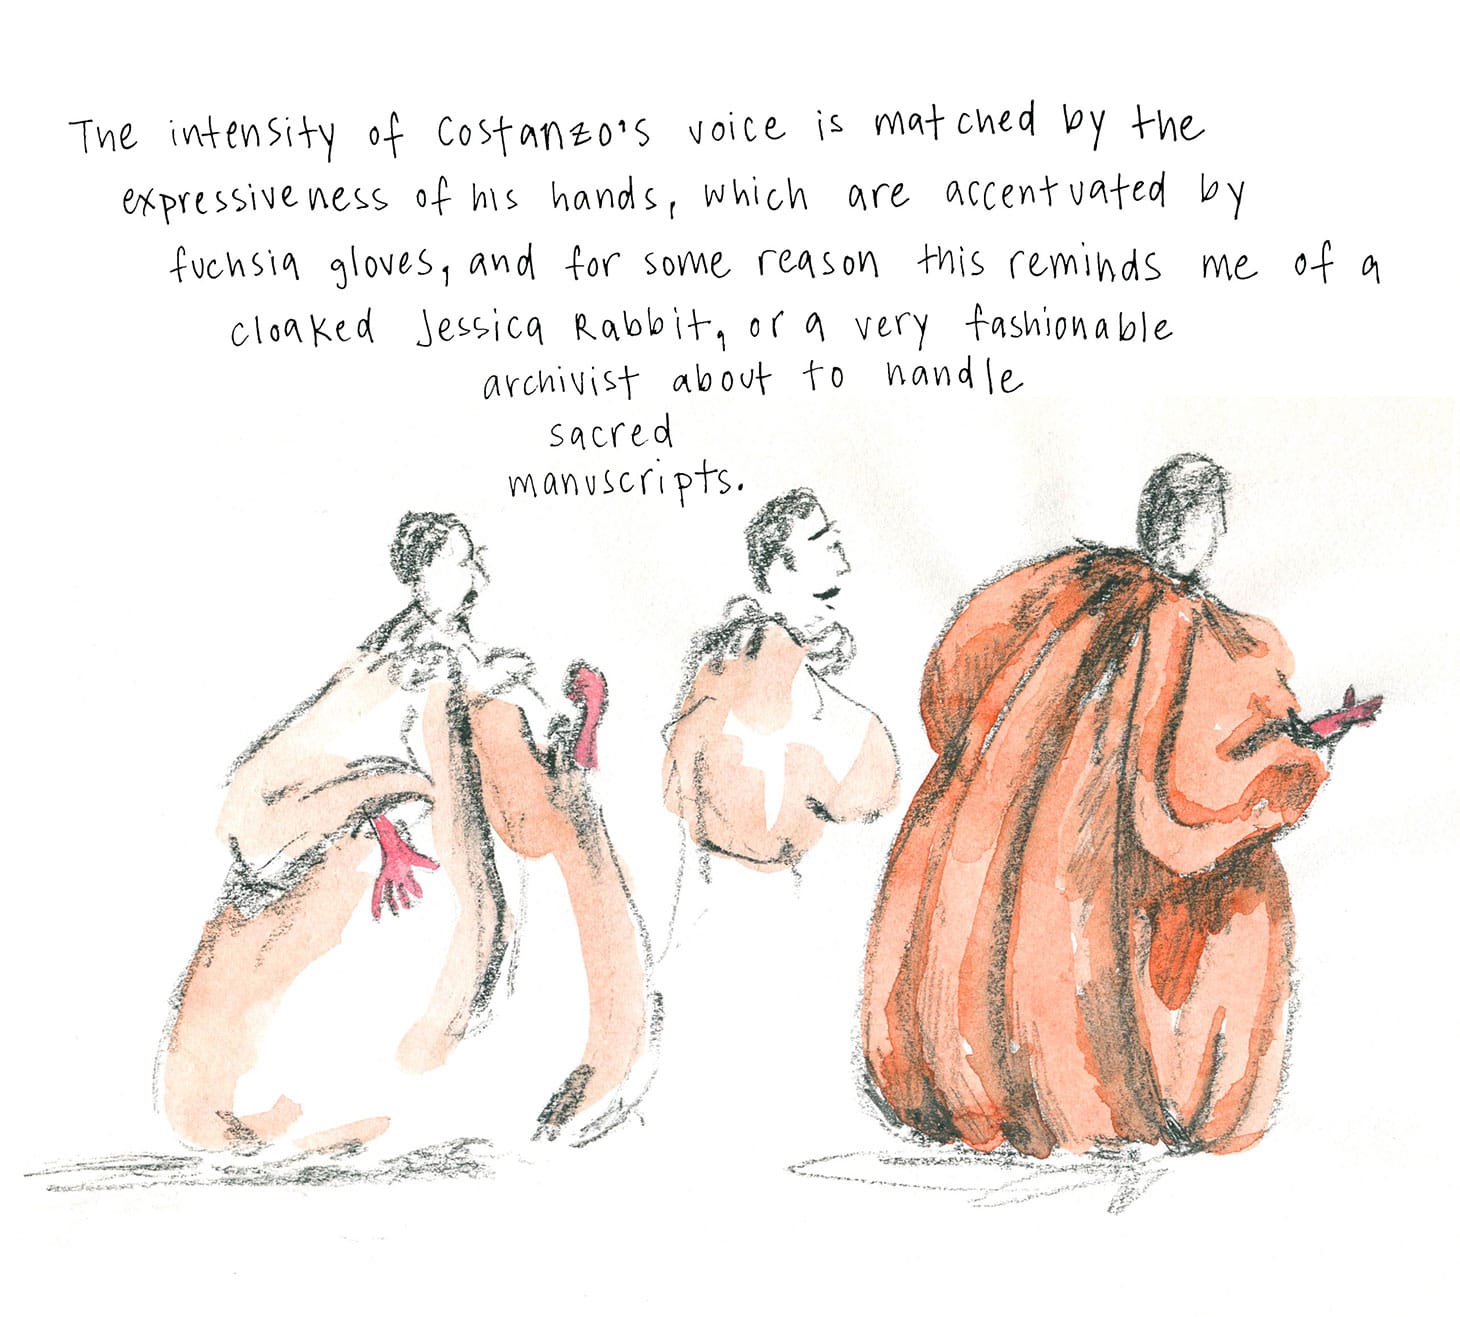 The intensity of Costanzo's voice is matched by the
expressiveness of his hands, which are accentuated by
fuchsia gloves, and for some reason this reminds me of a
cloaked Jessica Rabbit, or a very fashionable
archivist about to handle
sacred
manuscripts.